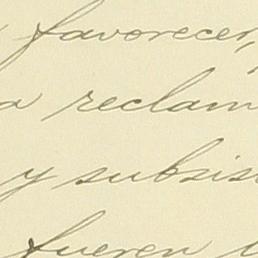 favorecer,
a reclam
y subsis
fueren